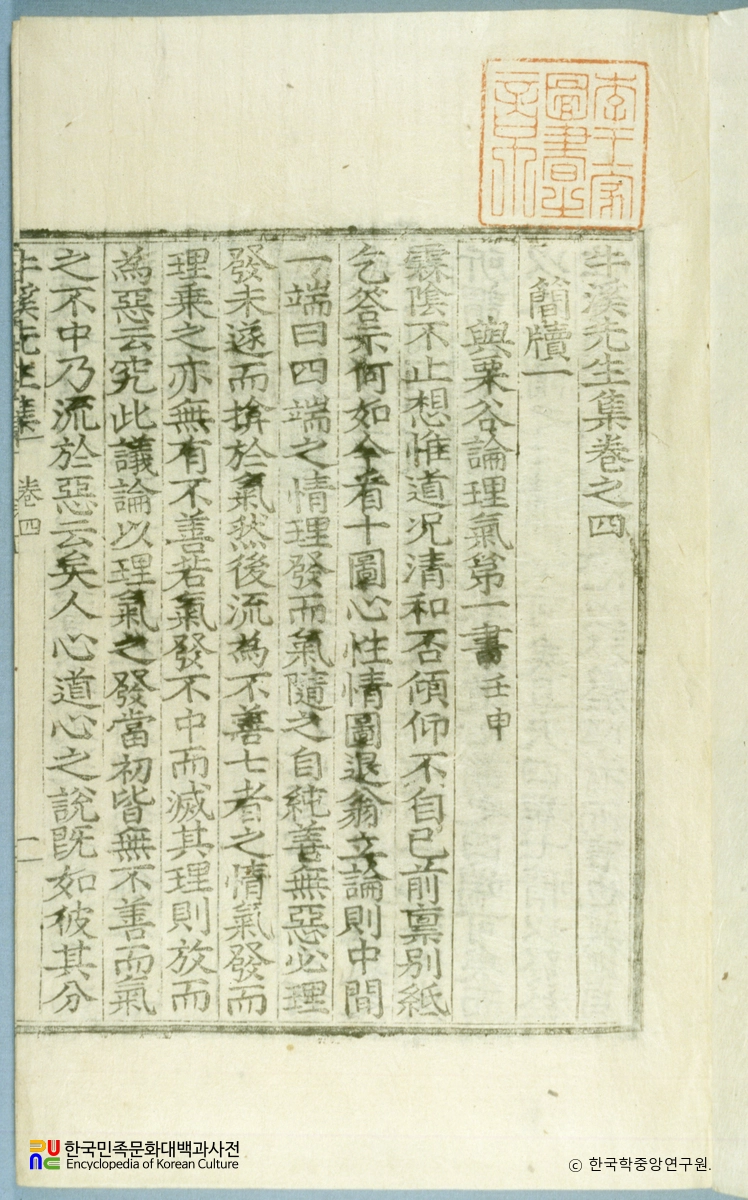 牛溪先生集卷之四
簡牘一
與栗谷論理氣第一書 壬申
霖陰不止想惟道況淸和否傾仰不自已前稟別紙
乞答示何如今看十圖心性情圖退翁立論則中間
一端曰四端之情理發而氣隨之自純善無惡必理
發未遂而揜於氣然後流為不善七者之情氣發而
理乘之亦無有不善若氣發不中而滅其理則放而
為惡云究此議論以理氣之發當初皆無不善而氣
之不中乃流於惡云矣人心道心之說旣如彼其分
牛溪先生集 卷四 一
李王家圖書之章
한국민족문화대백과사전
Encyclopedia of Korean Culture
ⓒ 한국학중앙연구원.